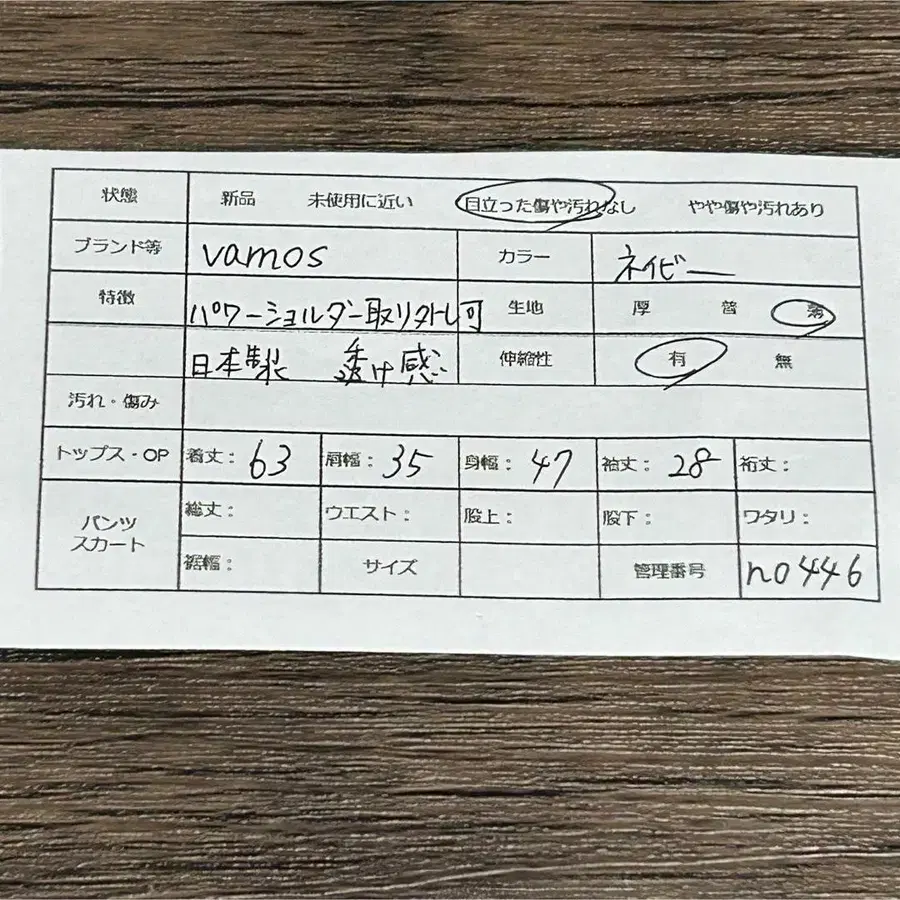 状態 新品 未使用に近い 目立った傷や汚れなし やや傷や汚れあり
ブランド等 vamos カラー ネイビー
特徴 パワーショルダー取り外し可 生地 厚 普 薄
日本製 透け感 伸縮性 有 無
汚れ・傷み
トップス・OP 着丈: 63 肩幅: 35 身幅: 47 袖丈: 28 裄丈:
パンツ スカート 総丈: ウエスト: 股上: 股下: ワタリ:
裾幅: サイズ 管理番号 no446